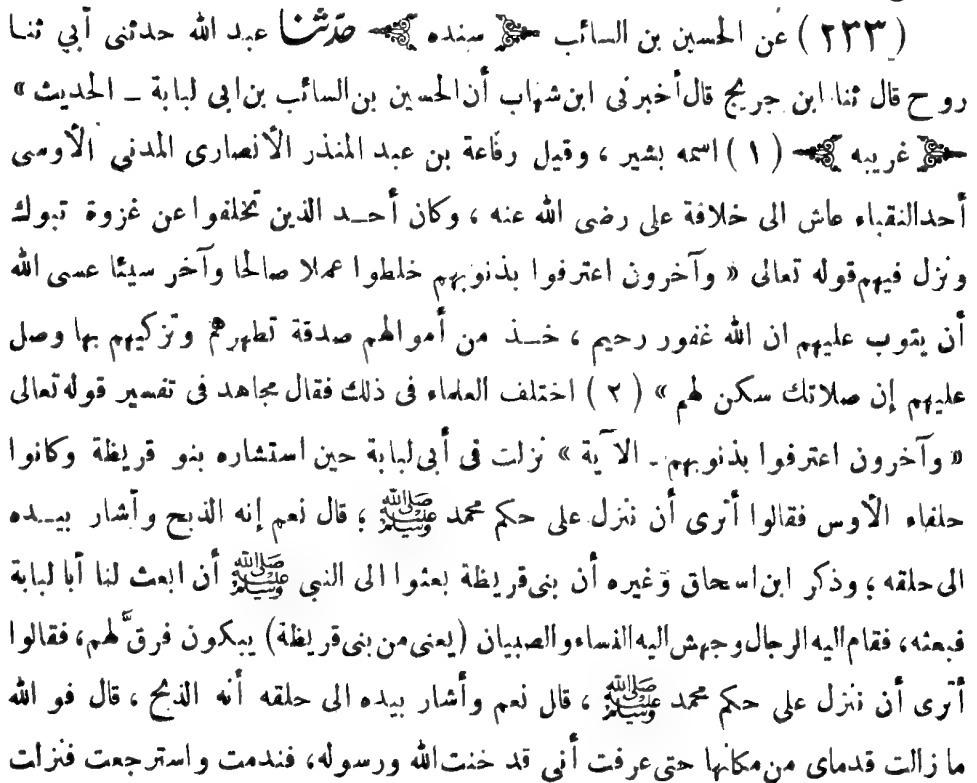 (٢٣٣) عن الحسين بن السائب ﴿ سنده ﴾ حدثنا عبد الله حدثنى أبي ثنا
روح قال ثنا ابن جريج قال أخبرنى ابن شهاب أن الحسين بن السائب بن ابى لبابة ـ الحديث »
﴿ غريبه ﴾ (١) اسمه بشير ، وقيل رفاعة بن عبد المنذر الأنصارى المدنى الأوسى
أحد النقباء عاش الى خلافة على رضى الله عنه ، وكان أحـد الذين تخلفوا عن غزوة تبوك
ونزل فيهم قوله تعالى « وآخرون اعترفوا بذنوبهم خلطوا عملا صالحا وآخر سيئا عسى الله
أن يتوب عليهم ان الله غفور رحيم ، خـذ من أموالهم صدقة تطهرهم وتزكيهم بها وصل
عليهم إن صلاتك سكن لهم » (٢) اختلف العلماء فى ذلك فقال مجاهد فى تفسير قوله تعالى
« وآخرون اعترفوا بذنوبهم ـ الآية » نزلت فى أبى لبابة حين استشاره بنو قريظة وكانوا
حلفاء الأوس فقالوا أترى أن ننزل على حكم محمد ﷺ ؛ قال نعم إنه الذبح وأشار بيـده
الى حلقه ؛ وذكر ابن اسحاق وغيره أن بنى قريظة بعثوا الى النبى ﷺ أن ابعث لنا أبا لبابة
فبعثه، فقام اليه الرجال وجهش اليه النساء والصبيان (يعنى من بنى قريظة) يبكون فرقَّ لهم، فقالوا
أترى أن ننزل على حكم محمد ﷺ ، قال نعم وأشار بيده الى حلقه أنه الذبح ، قال فو الله
ما زالت قدماى من مكانها حتى عرفت أنى قد خنت الله ورسوله، فندمت واسترجعت فنزلت